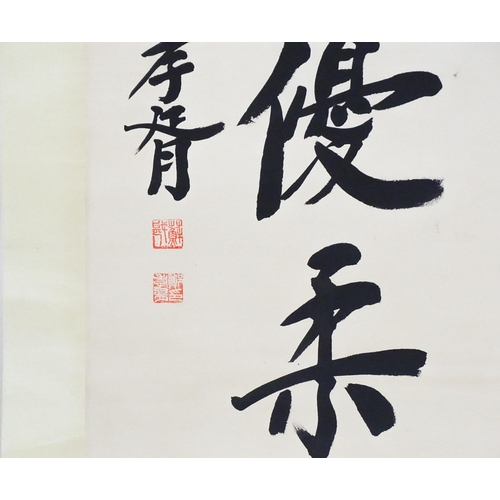 優柔
孝胥